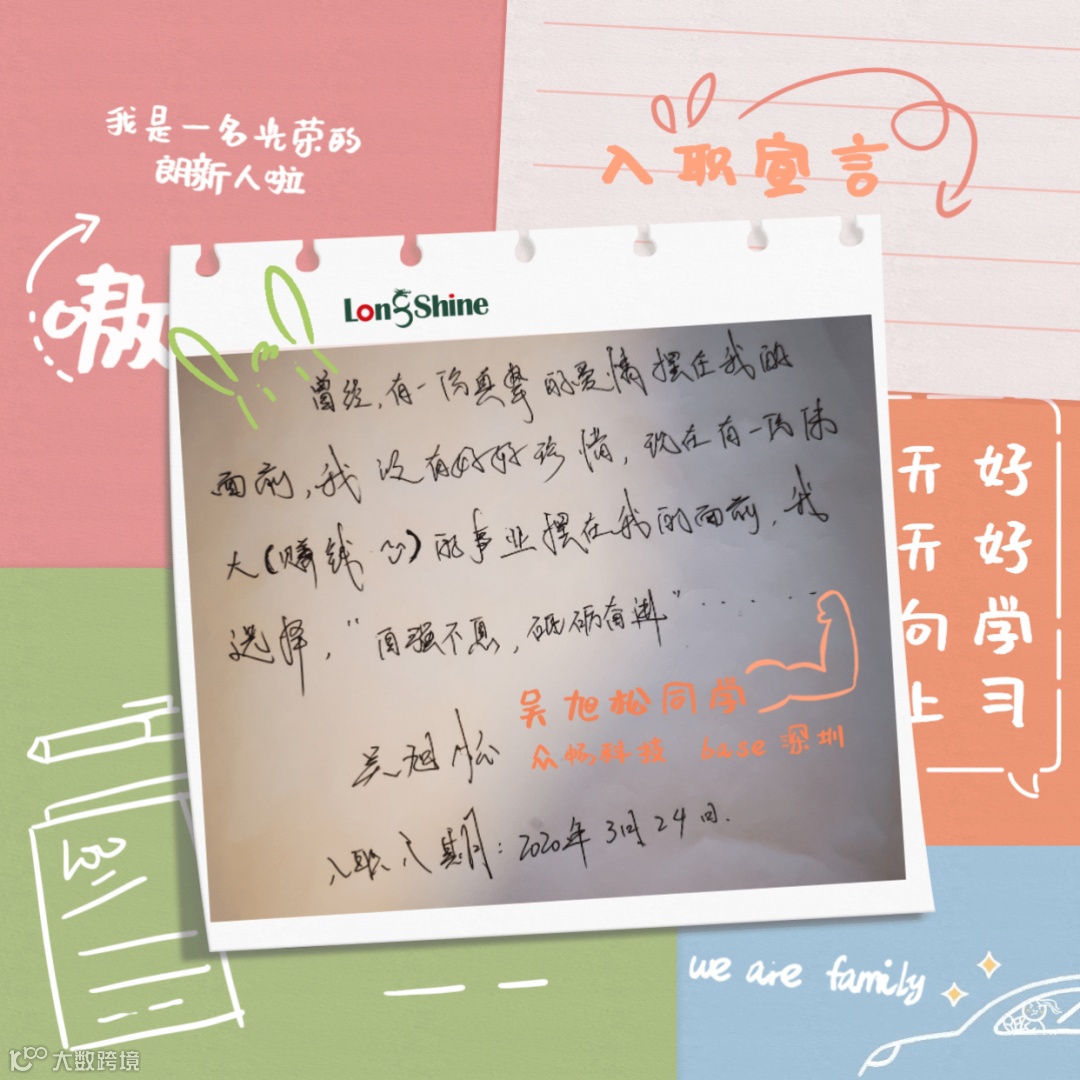 我是一名光荣的
朗新人啦
嗷
入职宣言
LongShine
曾经,有一份真挚的爱情摆在我的
面前,我没有好好珍惜,现在有一份伟
大(赚钱 )的事业摆在我的面前,我
选择,“自强不息,砥砺前进”......
吴旭松同学
众畅科技 base 深圳
吴旭松
入职日期:2020年3月24日.
好好学习
天天向上
100
we are family
大数跨境